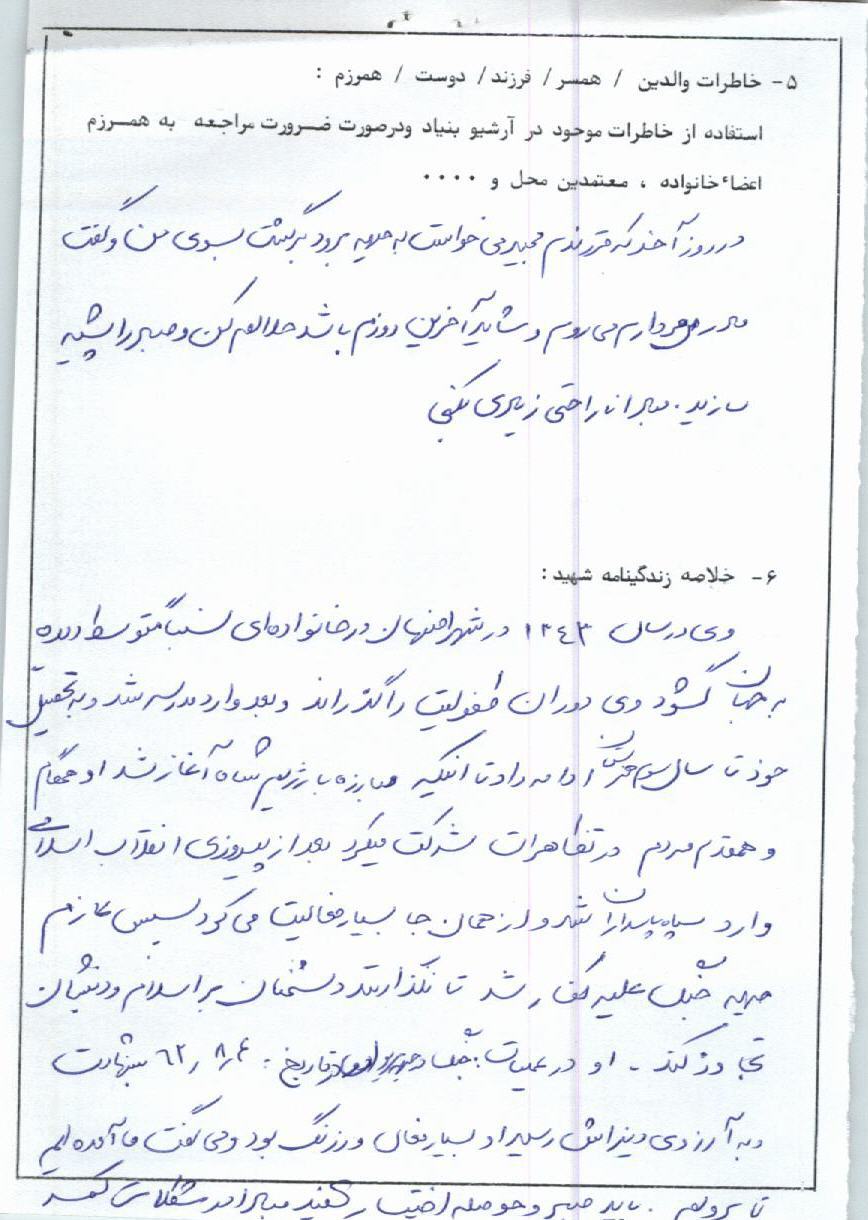 ۵- خاطرات والدین / همسر / فرزند / دوست / همرزم :
استفاده از خاطرات موجود در آرشیو بنیاد ودرصورت ضرورت مراجعه به همرزم
اعضاء خانواده ، معتمدین محل و ....
در روز آخر که فرزندم می خواست به جبهه برود برگشت بسوی من و گفت
مادر دارم می روم و شاید آخرین روزم باشد حلالم کن و صبر را پیشه
سازید. مبادا ناراحتی زیادی بکنی
۶- خلاصه زندگینامه شهید :
وی در سال ۱۳۴۳ در شهر اصفهان در خانواده‌ای نسبتاً متوسط دیده
به جهان گشود وی دوران طفولیت را گذراند و بعد وارد مدرسه شد و به تحصیل
خود تا سال سوم ادامه داد تا اینکه مبارزه با رژیم شاه آغاز شد او همگام
و همقدم مردم در تظاهرات شرکت میکرد بعد از پیروزی انقلاب اسلامی
وارد سپاه پاسداران شد و از همان جا بسیار فعالیت می کرد سپس عازم
جبهه جنگ علیه کفار شد تا نگذارند دشمنان بر اسلام و دینشان
تجاوز کند - او در عملیات تاریخ : ۶۲٫۸٫۴ بشهادت
و به آرزوی دیرینه‌اش رسید او بسیار فعال و زرنگ بود و می گفت ما آمده ایم
تا برویم . باید صبر و حوصله اختیار کنید مبادا در مشکلات